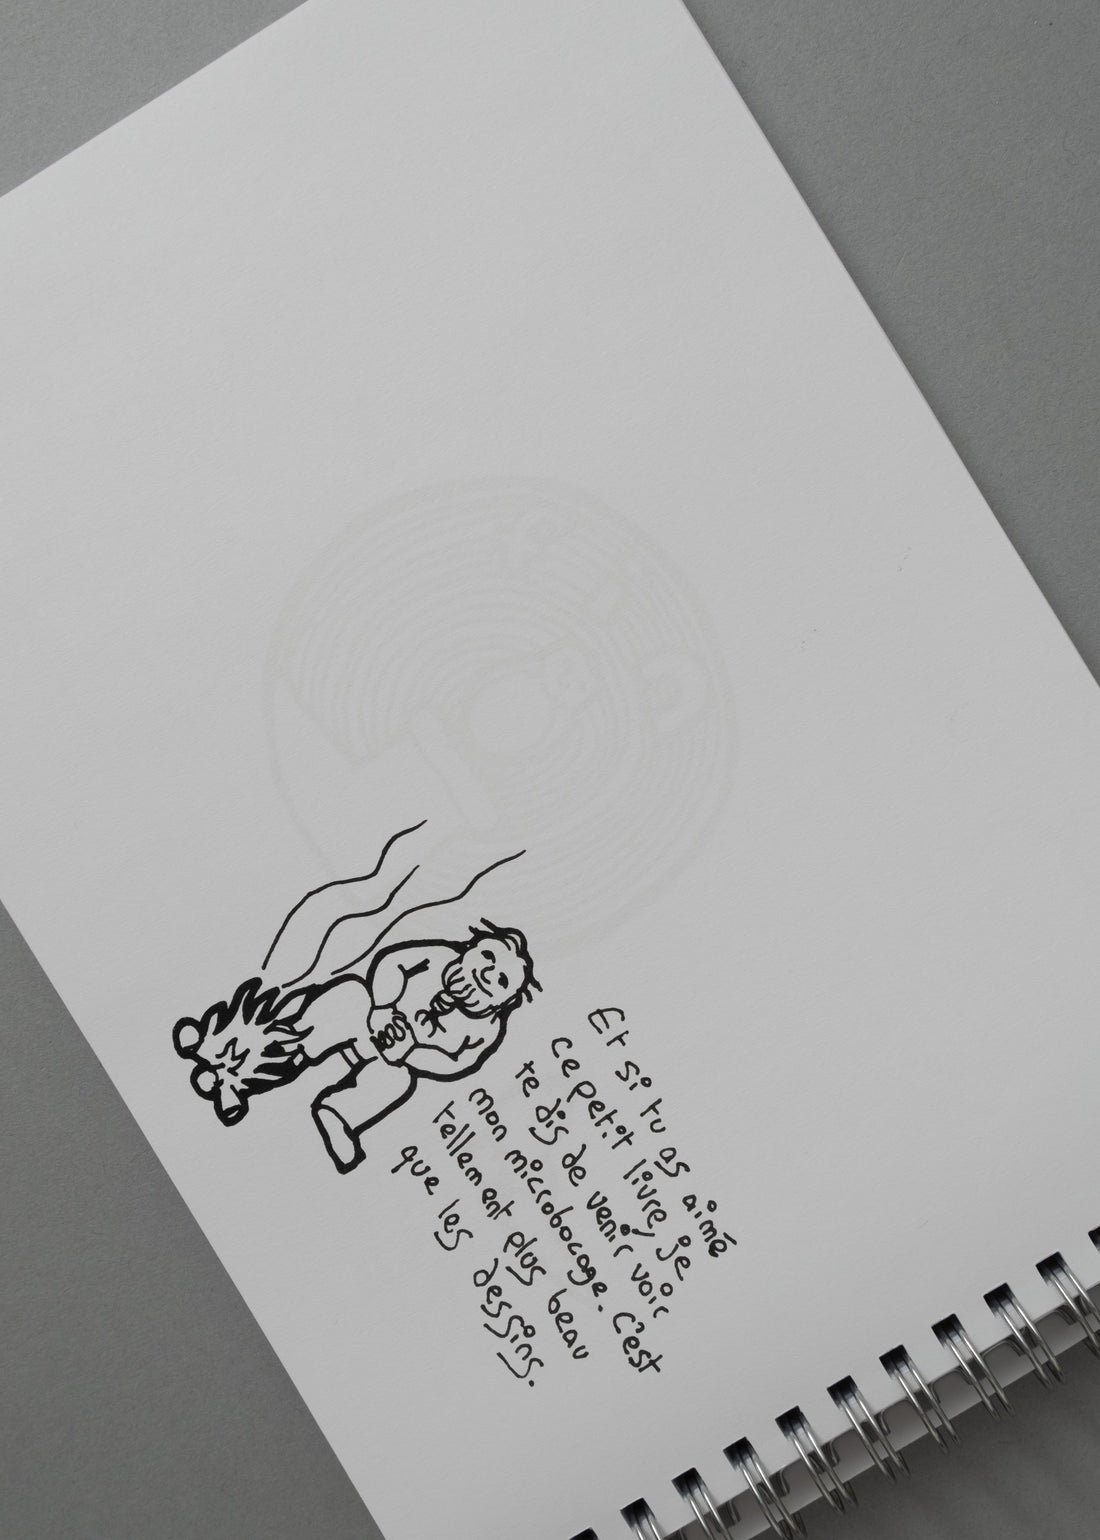 Et si tu as aimé
ce petit livre, je
te dis de venir voir
mon microbocage. C'est
tellement plus beau
que les dessins.